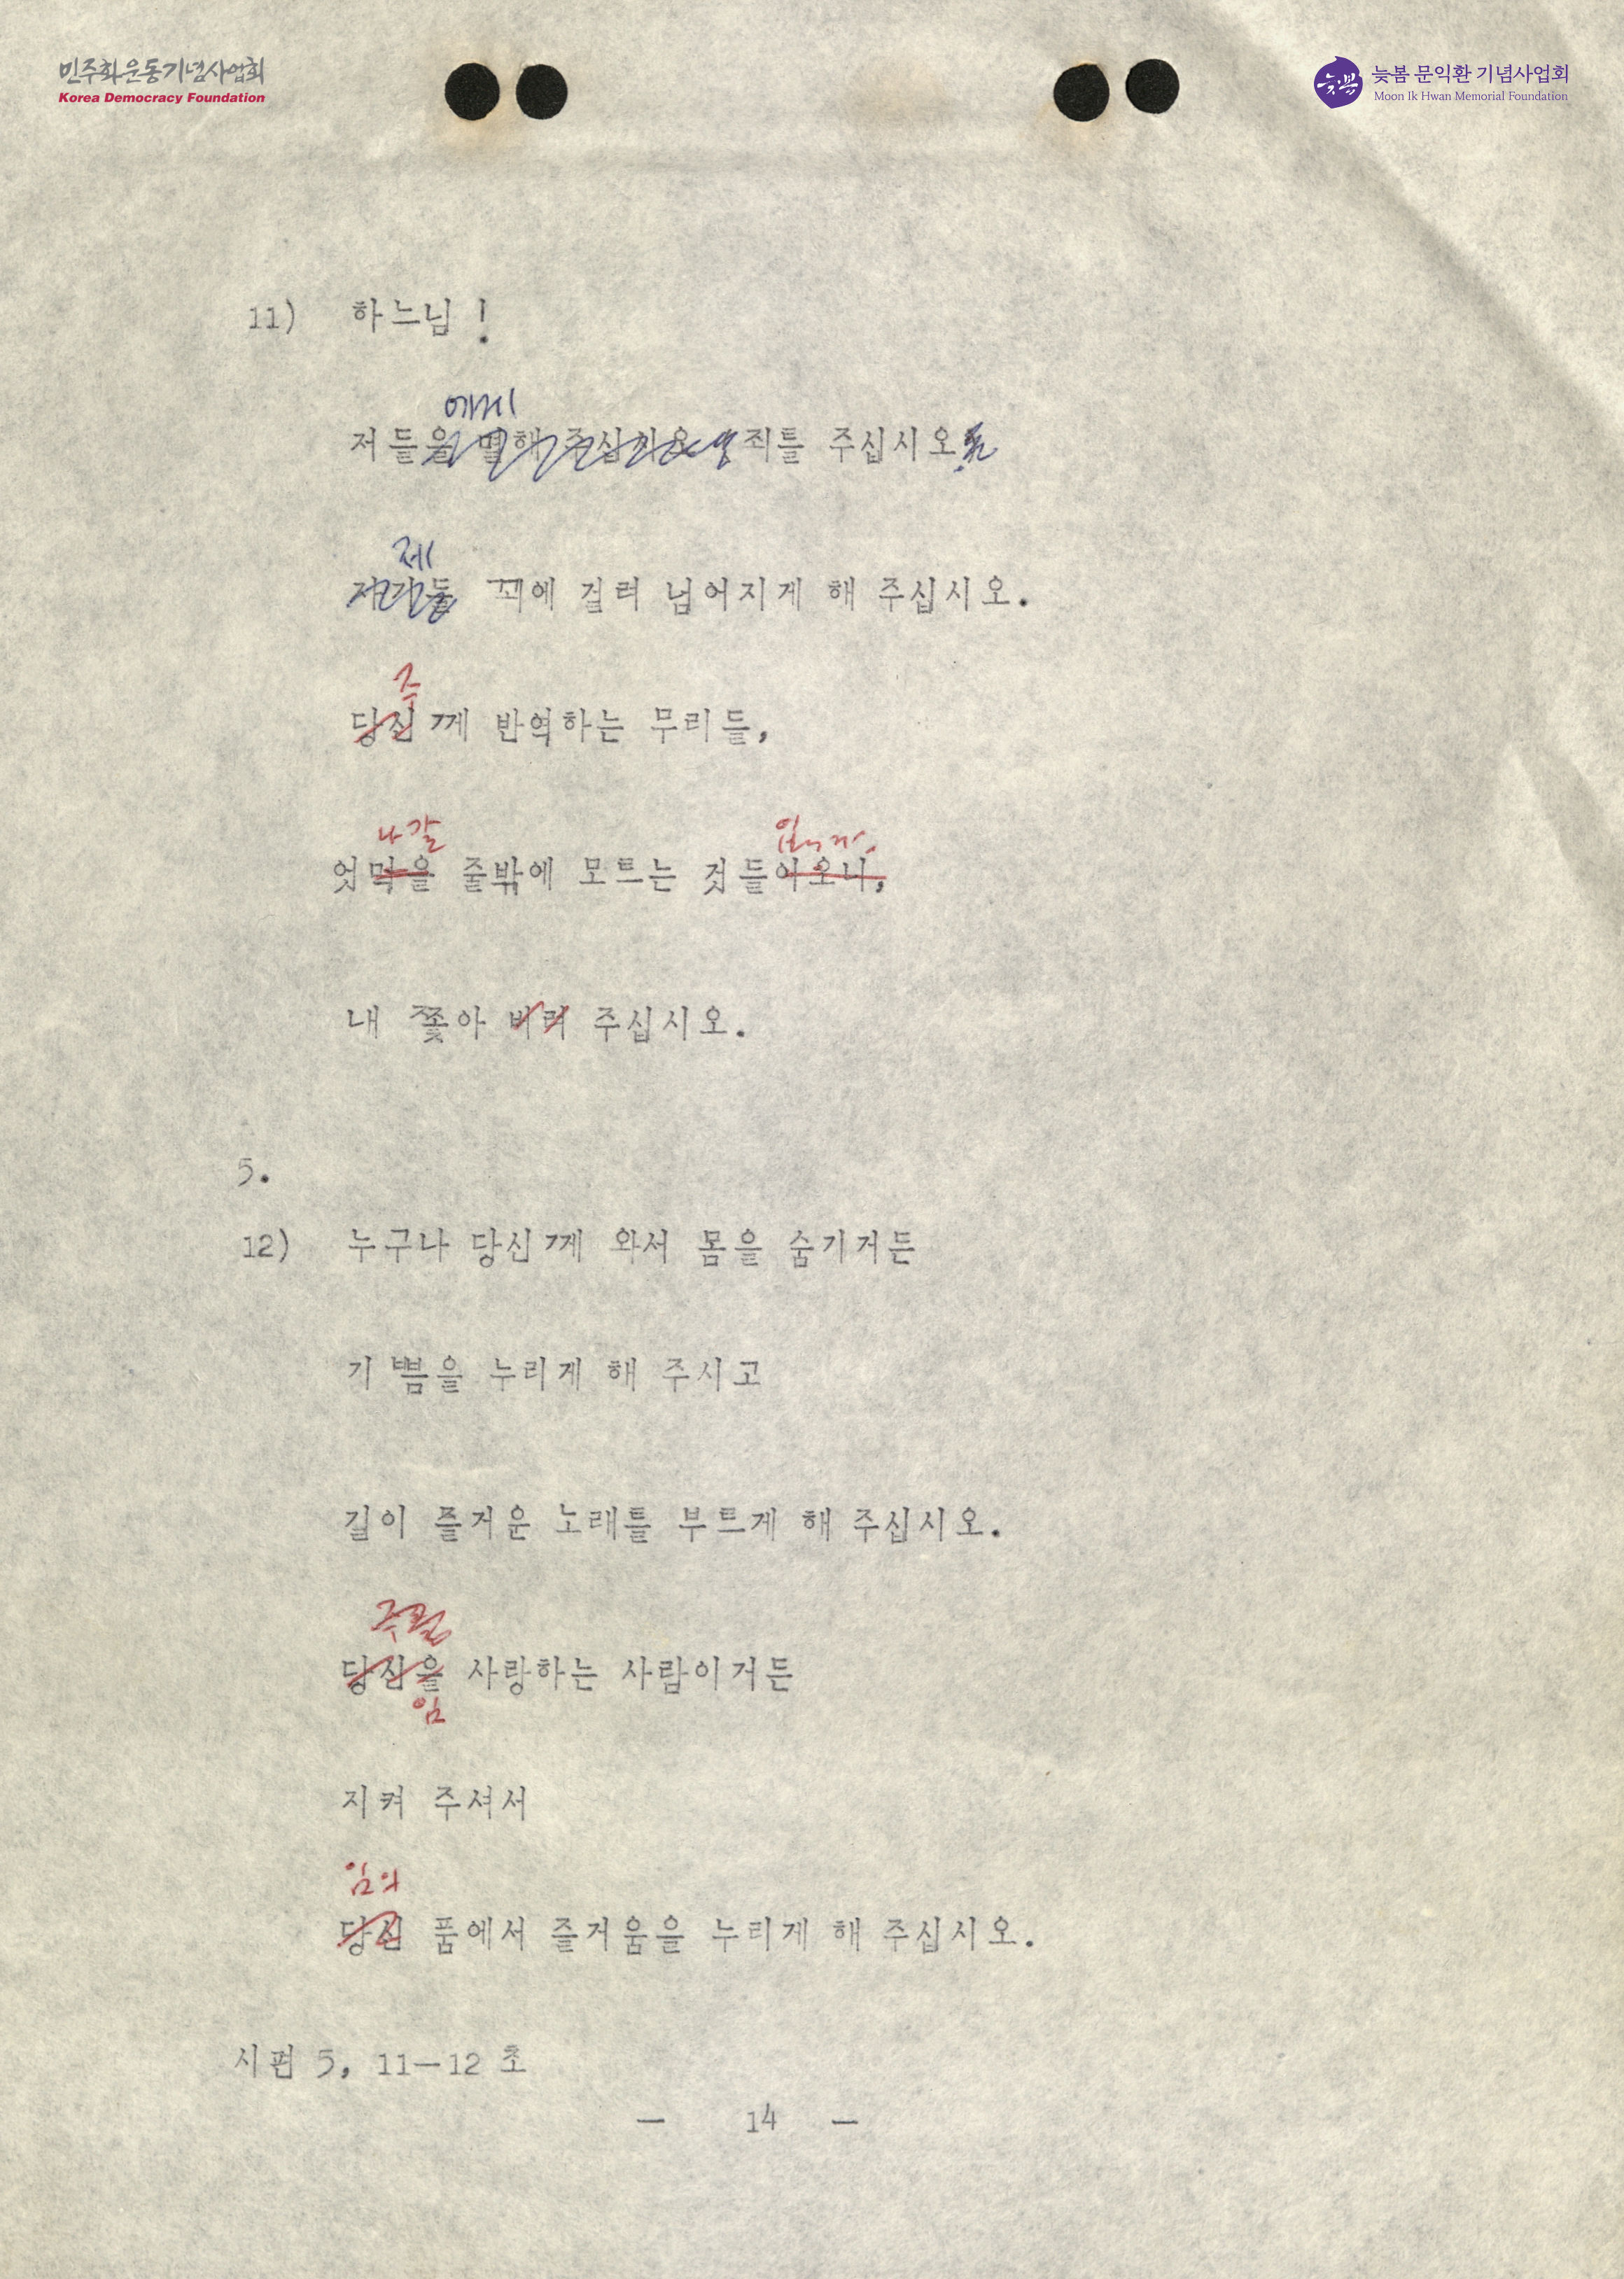 민주화운동기념사업회
Korea Democracy Foundation
늦봄
늦봄 문익환 기념사업회
Moon Ik Hwan Memorial Foundation
11) 하느님 !
에게
저들을 멸해 주십시오 죄를 주십시오
제
저희들 꾀에 걸려 넘어지게 해 주십시오.
주
당신께 반역하는 무리들,
나갈
엇먹을 줄밖에 모르는 것들이오니,
내 쫓아 버려 주십시오.
5.
12) 누구나 당신께 와서 몸을 숨기거든
기쁨을 누리게 해 주시고
길이 즐거운 노래를 부르게 해 주십시오.
당신을 사랑하는 사람이거든
임
지켜 주셔서
임의
당신 품에서 즐거움을 누리게 해 주십시오.
시편 5, 11—12 초
— 14 —